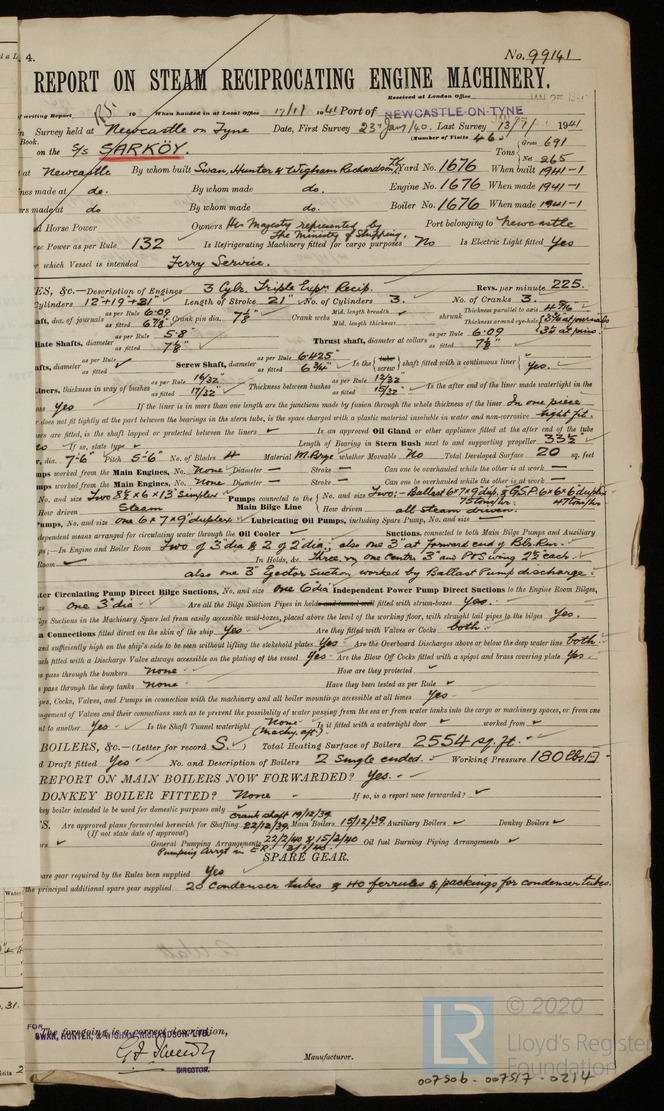 4.
No. 99141
REPORT ON STEAM RECIPROCATING ENGINE MACHINERY.
Received at London Office
writing Report 19 When handed in at Local Office 17/1/ 1941 Port of NEWCASTLE-ON-TYNE
Survey held at Newcastle on Tyne Date, First Survey 23rd Jan/40. Last Survey 13/1/ 1941
Book. (Number of Visits 46)
on the S/s SARKÖY. Tons Gross 691 Net 265
at Newcastle By whom built Swan, Hunter & Wigham Richardson Ltd Yard No. 1676 When built 1941-1
nes made at do. By whom made do. Engine No. 1676 When made 1941-1
rs made at do By whom made do. Boiler No. 1676 When made 1941-1
d Horse Power Owners His Majesty represented by the Ministry of Shipping. Port belonging to Newcastle
se Power as per Rule 132 Is Refrigerating Machinery fitted for cargo purposes No Is Electric Light fitted Yes
r which Vessel is intended Ferry Service.
ES, &c.—Description of Engines 3 Cylr. Triple Expn. Recip. Revs. per minute 225.
Cylinders 12"+19"+31" Length of Stroke 21" No. of Cylinders 3. No. of Cranks 3.
aft, dia. of journals as per Rule 6.09 as fitted 6 7/8" Crank pin dia. 7 1/8" Crank webs Mid. length breadth Mid. length thickness shrunk Thickness parallel to axis 4 5/16" Thickness around eye-hole 3 1/8" at journals 3 1/8" at pins.
iate Shafts, diameter as per Rule 5.8" as fitted 7 1/8" Thrust shaft, diameter at collars as per Rule 6.09 as fitted 7 1/8"
afts, diameter as per Rule as fitted Screw Shaft, diameter as per Rule 6.425 as fitted 6 3/4" Is the tube screw shaft fitted with a continuous liner Yes.
Liners, thickness in way of bushes as per Rule 16/32" as fitted 17/32" Thickness between bushes as per Rule 12/32 as fitted 15/32" Is the after end of the liner made watertight in the
ess Yes If the liner is in more than one length are the junctions made by fusion through the whole thickness of the liner In one piece
r does not fit tightly at the part between the bearings in the stern tube, is the space charged with a plastic material insoluble in water and non-corrosive tight fit.
ers are fitted, is the shaft lapped or protected between the liners Is an approved Oil Gland or other appliance fitted at the after end of the tube
no If so, state type Length of Bearing in Stern Bush next to and supporting propeller 33½
r, dia. 7'-6" Pitch 5'-6" No. of Blades 4 Material M. Bronze whether Moveable No Total Developed Surface 20 sq. feet
mps worked from the Main Engines, No. None Diameter — Stroke — Can one be overhauled while the other is at work —
mps worked from the Main Engines, No. None Diameter — Stroke — Can one be overhauled while the other is at work —
No. and size Two 8½×6×13" Simplex Pumps connected to the No. and size Two:- Ballast 6"×7"×9" dup. & G.S.P. 6×6×6 duplex 75 tons/hr. 47 tons/hr
How driven Steam Main Bilge Line How driven all steam driven.
umps, No. and size one 6×7×9" duplex Lubricating Oil Pumps, including Spare Pump, No. and size
dependent means arranged for circulating water through the Oil Cooler Suctions, connected to both Main Bilge Pumps and Auxiliary
ps;—In Engine and Boiler Room Two of 3" dia & 2 of 2" dia; also one 3" at Forward end of Blr. Rm.
Room In Holds, &c. Three, viz one centre 3" and P & S wing 2½ each.
also one 3" Ejector Suction worked by Ballast Pump discharge.
ter Circulating Pump Direct Bilge Suctions, No. and size one 6" dia Independent Power Pump Direct Suctions to the Engine Room Bilges,
size one 3" dia. Are all the Bilge Suction Pipes in holds and tunnel well fitted with strum-boxes Yes.
lge Suctions in the Machinery Space led from easily accessible mud-boxes, placed above the level of the working floor, with straight tail pipes to the bilges Yes.
a Connections fitted direct on the skin of the ship Yes Are they fitted with Valves or Cocks both
xed sufficiently high on the ship's side to be seen without lifting the stokehold plates Yes Are the Overboard Discharges above or below the deep water line both
ach fitted with a Discharge Valve always accessible on the plating of the vessel Yes Are the Blow Off Cocks fitted with a spigot and brass covering plate Yes
s pass through the bunkers None How are they protected
s pass through the deep tanks None Have they been tested as per Rule
ipes, Cocks, Valves, and Pumps in connection with the machinery and all boiler mountings accessible at all times Yes
ngement of Valves and their connections such as to prevent the possibility of water passing from the sea or from water tanks into the cargo or machinery spaces, or from one
nt to another Yes Is the Shaft Tunnel watertight None (Machy. aft) Is it fitted with a watertight door worked from
BOILERS, &c.—(Letter for record S.) Total Heating Surface of Boilers 2554 sq. ft.
d Draft fitted Yes No. and Description of Boilers 2 Single ended. Working Pressure 180 lbs
REPORT ON MAIN BOILERS NOW FORWARDED? Yes.
DONKEY BOILER FITTED? None If so, is a report now forwarded?
key boiler intended to be used for domestic purposes only
Crank shaft 19/12/39
S. Are approved plans forwarded herewith for Shafting 22/12/39 Main Boilers 15/12/39 Auxiliary Boilers Donkey Boilers
(If not state date of approval)
General Pumping Arrangements 22/2/40 & 15/2/40 Oil fuel Burning Piping Arrangements
Pumping Arrgt in E.R.
SPARE GEAR.
are gear required by the Rules been supplied Yes
the principal additional spare gear supplied 20 condenser tubes & 40 ferrules & packings for condenser tubes.
The foregoing is a correct description,
FOR SWAN, HUNTER, & WIGHAM RICHARDSON, LTD.
DIRECTOR.
Manufacturer.
LR © 2020
Lloyd's Register
Foundation
007506-007517-0214